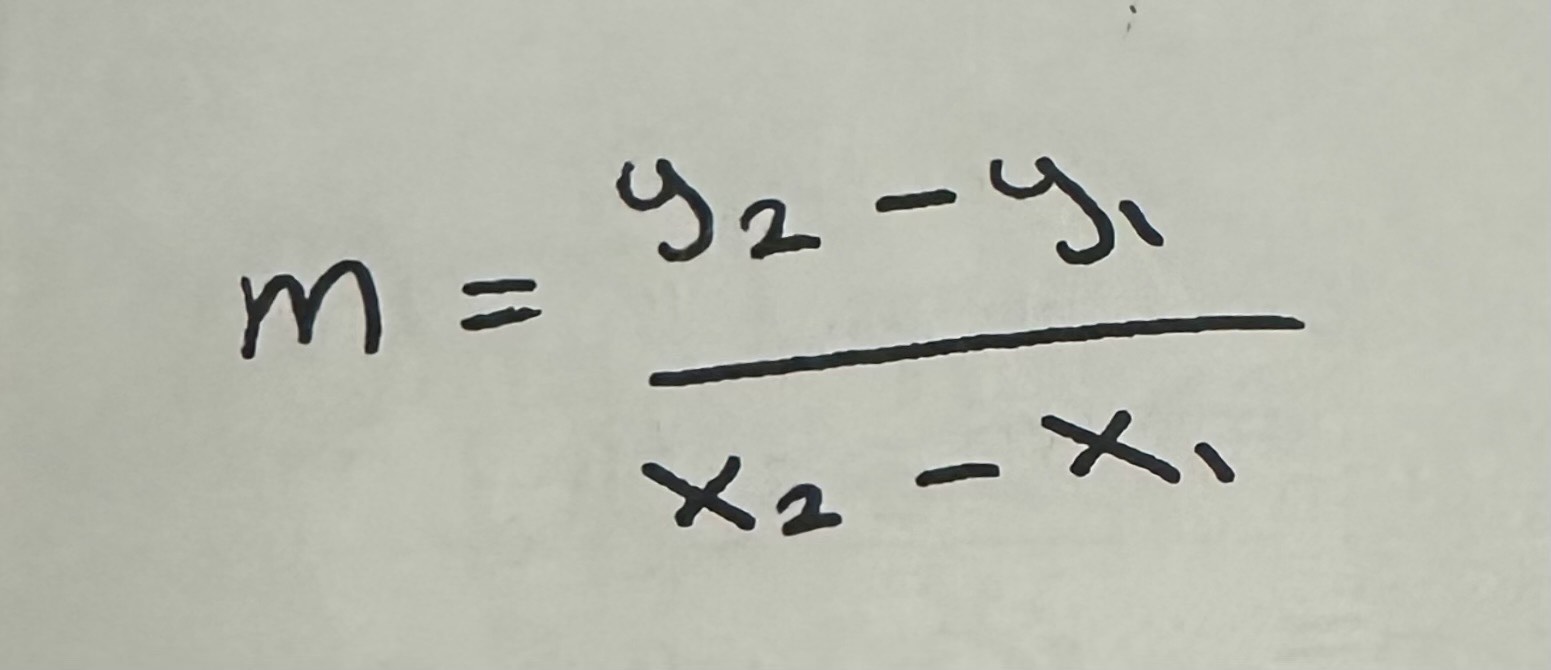 m = y₂ - y₁
x₂ - x₁